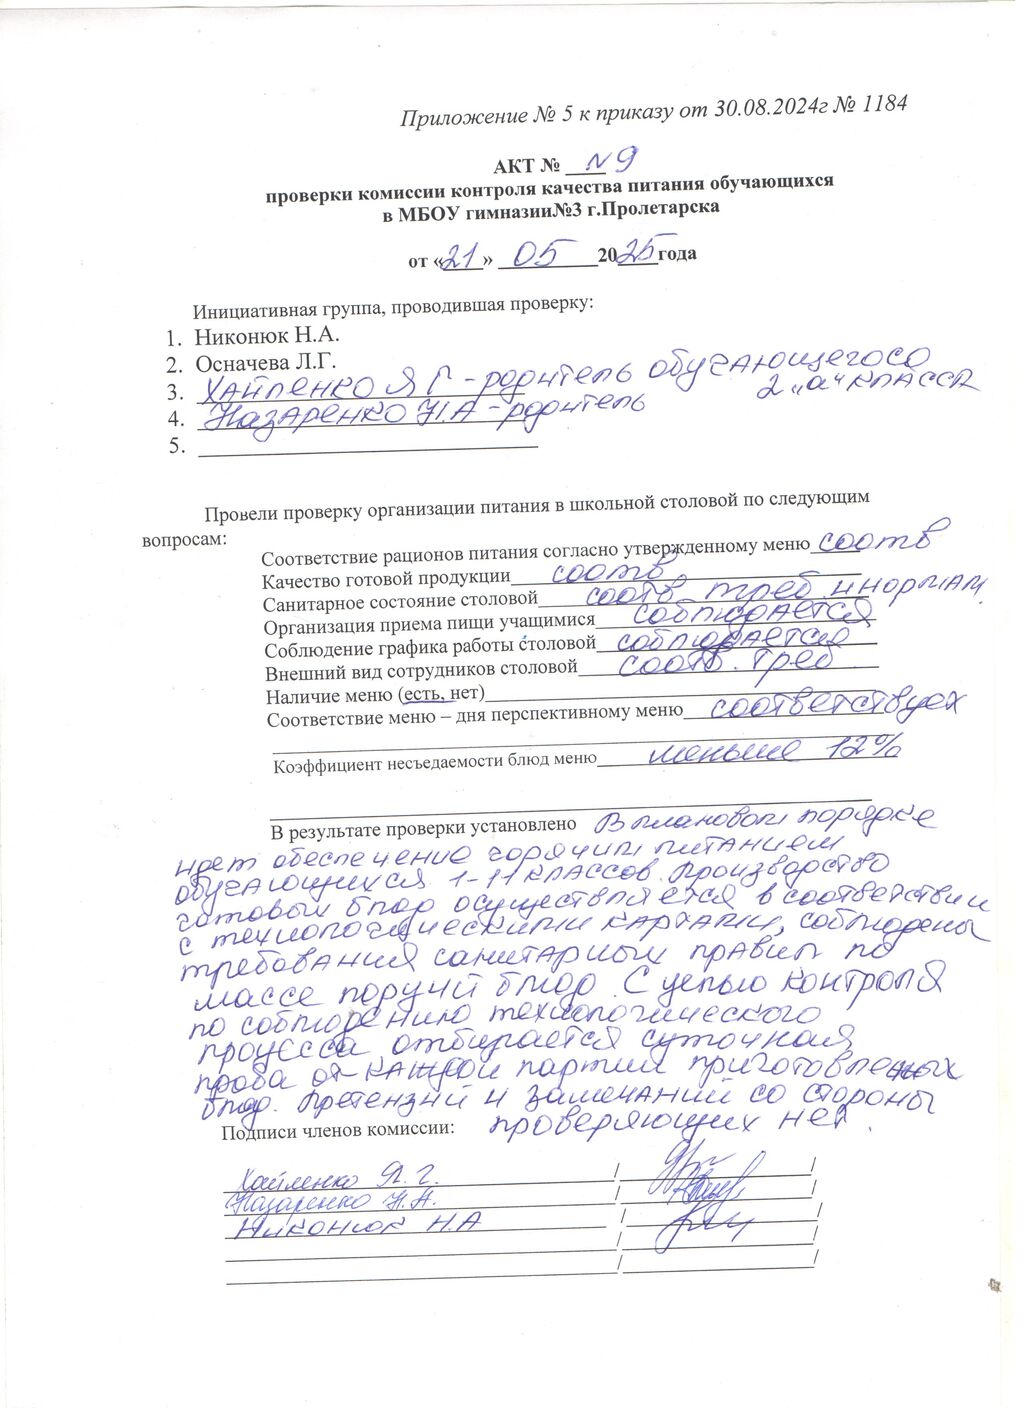 Приложение № 5 к приказу от 30.08.2024г № 1184
АКТ № N 9
проверки комиссии контроля качества питания обучающихся
в МБОУ гимназии№3 г.Пролетарска
от «21» 05 2025 года
Инициативная группа, проводившая проверку:
1. Никонюк Н.А.
2. Осначева Л.Г.
3. Хайленко Я Г - родитель обучающегося
2 „а" класса
4. Назаренко Н.А - родитель
5.
Провели проверку организации питания в школьной столовой по следующим
вопросам:
Соответствие рационов питания согласно утвержденному меню соотв
Качество готовой продукции соотв
Санитарное состояние столовой соотв треб. и нормам
Организация приема пищи учащимися соблюдается
Соблюдение графика работы столовой соблюдается
Внешний вид сотрудников столовой соотв. треб
Наличие меню (есть, нет)
Соответствие меню – дня перспективному меню соответствует
Коэффициент несъедаемости блюд меню меньше 12%
В результате проверки установлено В плановом порядке
идет обеспечение горячим питанием
обучающихся 1-11 классов. Производство
готовых блюд осуществляется в соответствии
с технологическими картами, соблюдены
требования санитарных правил по
массе порций блюд. С целью контроля
по соблюдению технологического
процесса отбирается суточная
проба от каждой партии приготовленных
блюд. Претензий и замечаний со стороны
проверяющих нет.
Подписи членов комиссии:
Хайленко Я. Г. / /
Назаренко Н.А. / /
Никонюк Н.А / /
/ /
/ /